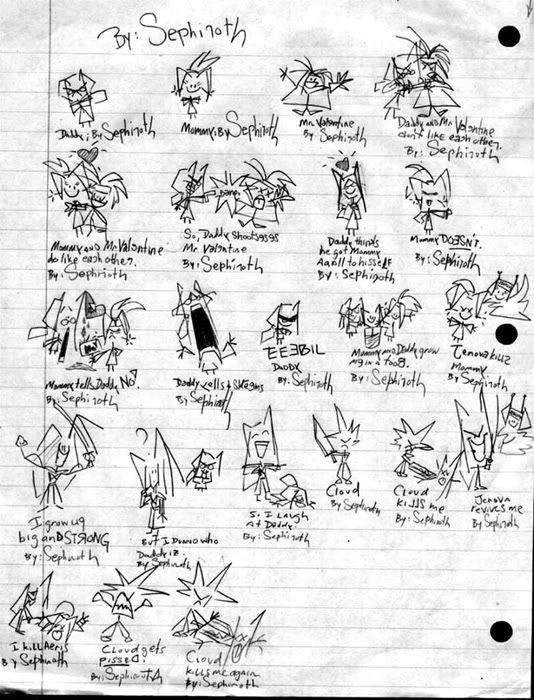 By: Sephiroth
Daddy: By Sephiroth
Mommy: By Sephiroth
Mr. Valentine
By: Sephiroth
Daddy AND Mr. Valentine
don't like each other.
By: Sephiroth
Mommy AND Mr. Valentine
do like each other.
By: Sephiroth
BANG
So, Daddy shoots
Mr. Valentine
By: Sephiroth
Daddy thinks
he got Mommy
to hisself
By: Sephiroth
Mommy DOESN'T.
By: Sephiroth
Mommy tells Daddy, NO!
By: Sephiroth
Daddy yells & screams
By: Sephiroth
EEEBIL
DADDY
By: Sephiroth
Mommy and Daddy grow
me in a
By: Sephiroth
Jenova kills
Mommy
By: Sephiroth
I grow up
big and STRONG
By: Sephiroth
But I Donno who
Daddy iz.
By: Sephiroth
So I laugh
At Daddy.
By: Sephiroth
Cloud
By: Sephiroth
Cloud
Kills me
By: Sephiroth
Jenova
revives me
By: Sephiroth
I kill Aeris
By Sephiroth
Cloud gets
pissed.
By: Sephiroth
Cloud
kills me again
By: Sephiroth